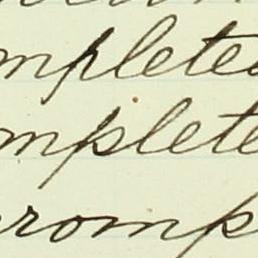 mpleted
mplete
romp